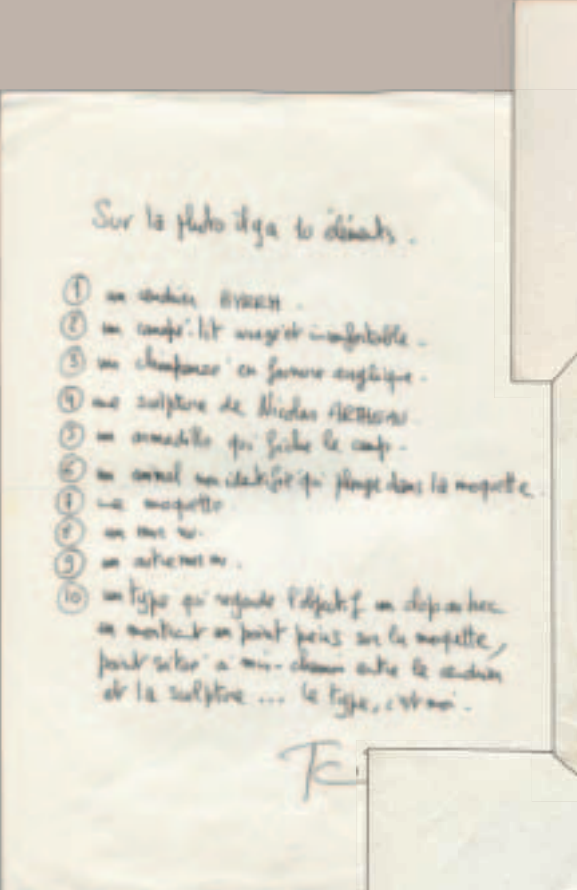 Sur la photo il y a 10 éléments.
① un cendrier BYRRH.
② un canapé-lit usagé et inconfortable.
③ un chimpanzé en fourrure
④ une sculpture de Nicolas
⑤ un armadillo qui fiche le camp.
⑥ un animal non identifié qui plonge dans la moquette.
⑦ la moquette
⑧ un mur
⑨ un autre mur
⑩ un type qui regarde l'objectif un clope au bec
en montrant un point précis sur la moquette,
point situé à mi-chemin entre le cendrier
et la sculpture ... le type, c'est moi.
TC